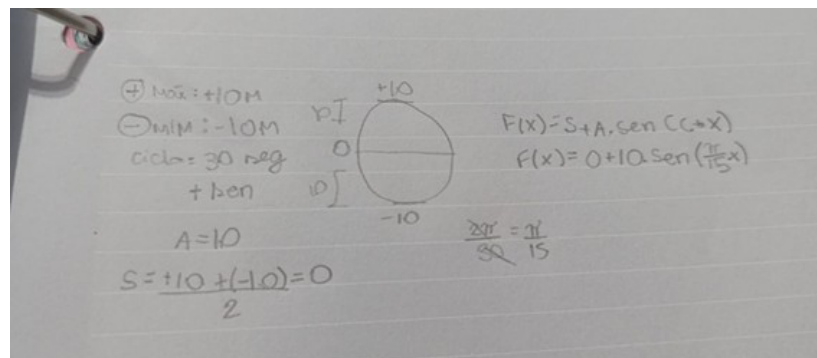 ⊕ Máx: +10M
⊖ MÍM: -10M
Ciclo: 30 seg
+ sen
A=10
S = +10 + (-10) = 0
2
+10
10
0
10
-10
F(x)=S+A.sen(C*x)
F(x)=0+10.sen(π/15 x)
2π/30 = π/15